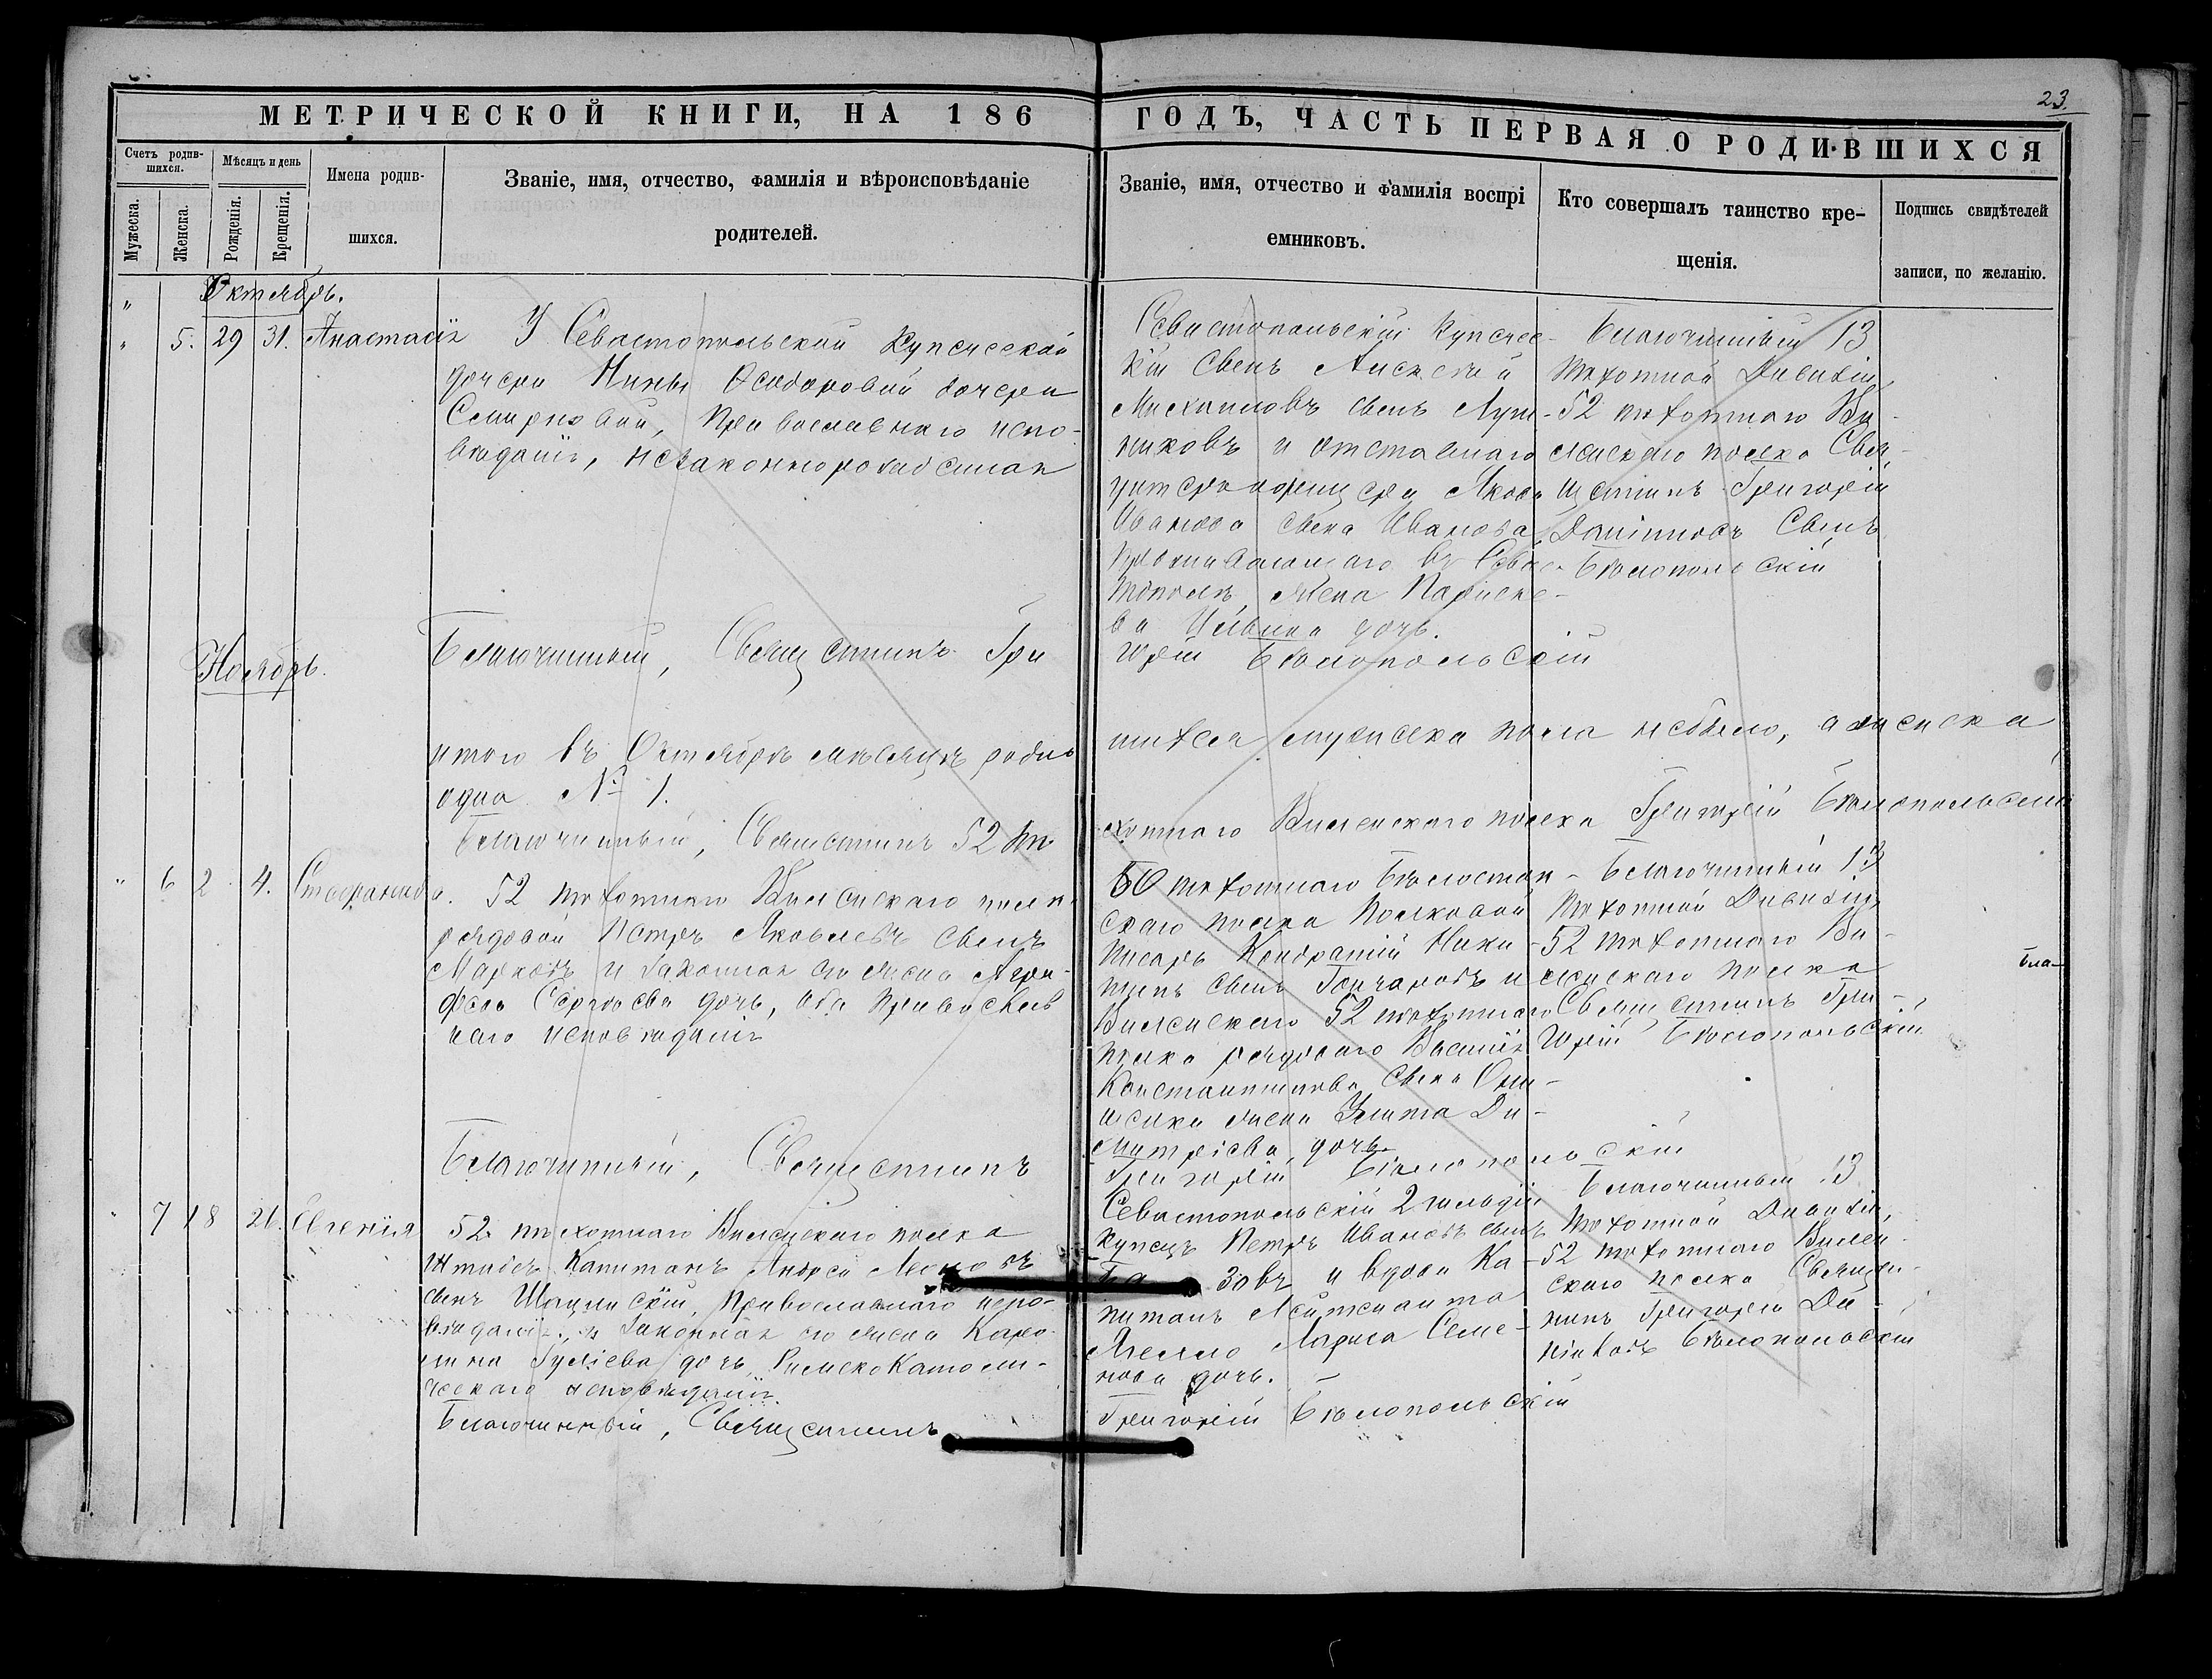 23
МЕТРИЧЕСКОЙ КНИГИ, НА 186
ГОДЪ, ЧАСТЬ ПЕРВАЯ О РОДИВШИХСЯ
Счетъ родив-
шихся.
Мужеска.
Женска.
Мѣсяцъ и день
Рожденія.
Крещенія.
Имена родив-
шихся.
Званіе, имя, отчество, фамилія и вѣроисповѣданіе
родителей.
Званіе, имя, отчество и фамилія воспрі
емниковъ.
Кто совершалъ таинство кре-
щенія.
Подпись свидѣтелей
записи, по желанію.
Октябрь.
5. 29 31. Анастасія
У Севастопольской Купческой
дочери Нины Ѳедоровой дочери
Смирновой, Православнаго испо-
вѣданія, незаконнорожденная
Севастопольскій Купчес-
кій Сынъ Алексѣй
Михаиловъ сынъ Лут-
никовъ и отставнаго
унтеръ офицера Якова
Иванова сына Иванова,
проживающаго въ Сева-
тополѣ, жена Параске-
ва дочь.
Благочинный 13
Пѣхотной Дивизіи,
52 пѣхотнаго Ви-
ленскаго полка Свя-
щенникъ Григорій
Сынъ
Бѣлопольскій
Благочинный, Священникъ Гри
горій Бѣлопольскій
Ноябрь.
итого въ Октябрѣ мѣсяцѣ родив
шихся мужеска пола небыло, а женска
одна № 1.
Благочинный, Священникъ 52 пѣ
хотнаго Виленскаго полка Григорій Бѣлопольскій
6 2 4. Стефанида.
52 пѣхотнаго Виленскаго полка
рядовой Петръ Яковлевъ сынъ
Марковъ и законная его жена Агра-
фена Сергѣева дочь, оба Православ
наго исповѣданія
50 пѣхотнаго Бѣлосток-
скаго полка Полковой
писарь Кондратій Ники-
тинъ сынъ Гончаровъ и
Виленскаго 52 пѣхотнаго
полка рядоваго Василія
Константинова сына
жена Улита Ди-
митріева, дочь.
Благочинный 13
Пѣхотной Дивизіи,
52 пѣхотнаго Ви-
ленскаго полка
Священникъ Гри-
горій Бѣлопольскій
бла-
Благочинный, Священникъ
Григорій Бѣлопольскій
7 18 21. Евгенія
52 пѣхотнаго Виленскаго полка
Штабсъ Капитанъ Андрей
сынъ Православнаго испо-
вѣданія, и законная его жена Каро-
лина Гуліева дочь, РимскоКатоли-
ческаго исповѣданія.
Севастопольскій 2 гильдіи
Купецъ Петръ Ивановъ сынъ
и вдова Ка-
питанъ Лейтенанта
Лариса Семе-
нова дочь.
Благочинный 13
Пѣхотной Дивизіи,
52 пѣхотнаго Вилен-
скаго полка Священ-
никъ Григорій Да
ніиловъ Бѣлопольскій
Благочинный, Священникъ
Григорій Бѣлопольскій